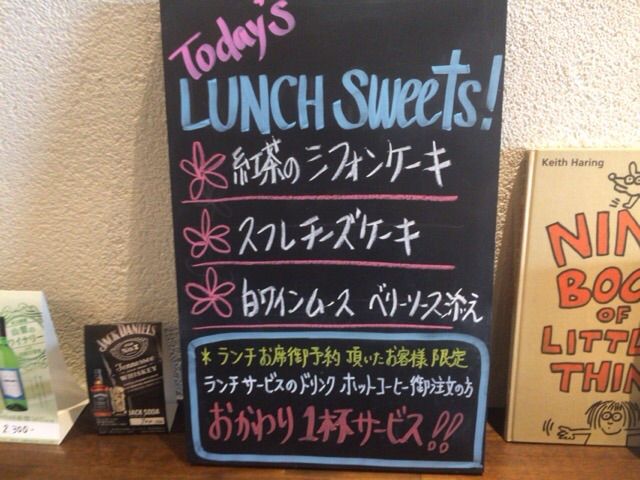 Today's
LUNCH Sweets!
紅茶のシフォンケーキ
スフレチーズケーキ
白ワインムース ベリーソース添え
* ランチお席御予約頂いたお客様限定
ランチサービスのドリンク ホットコーヒー御注文の方
おかわり1杯サービス!!
Keith Haring
NIN
BOO
OF
LITTL
THIN
JACK DANIEL'S
Tennessee
WHISKEY
JACK SODA
2,300-